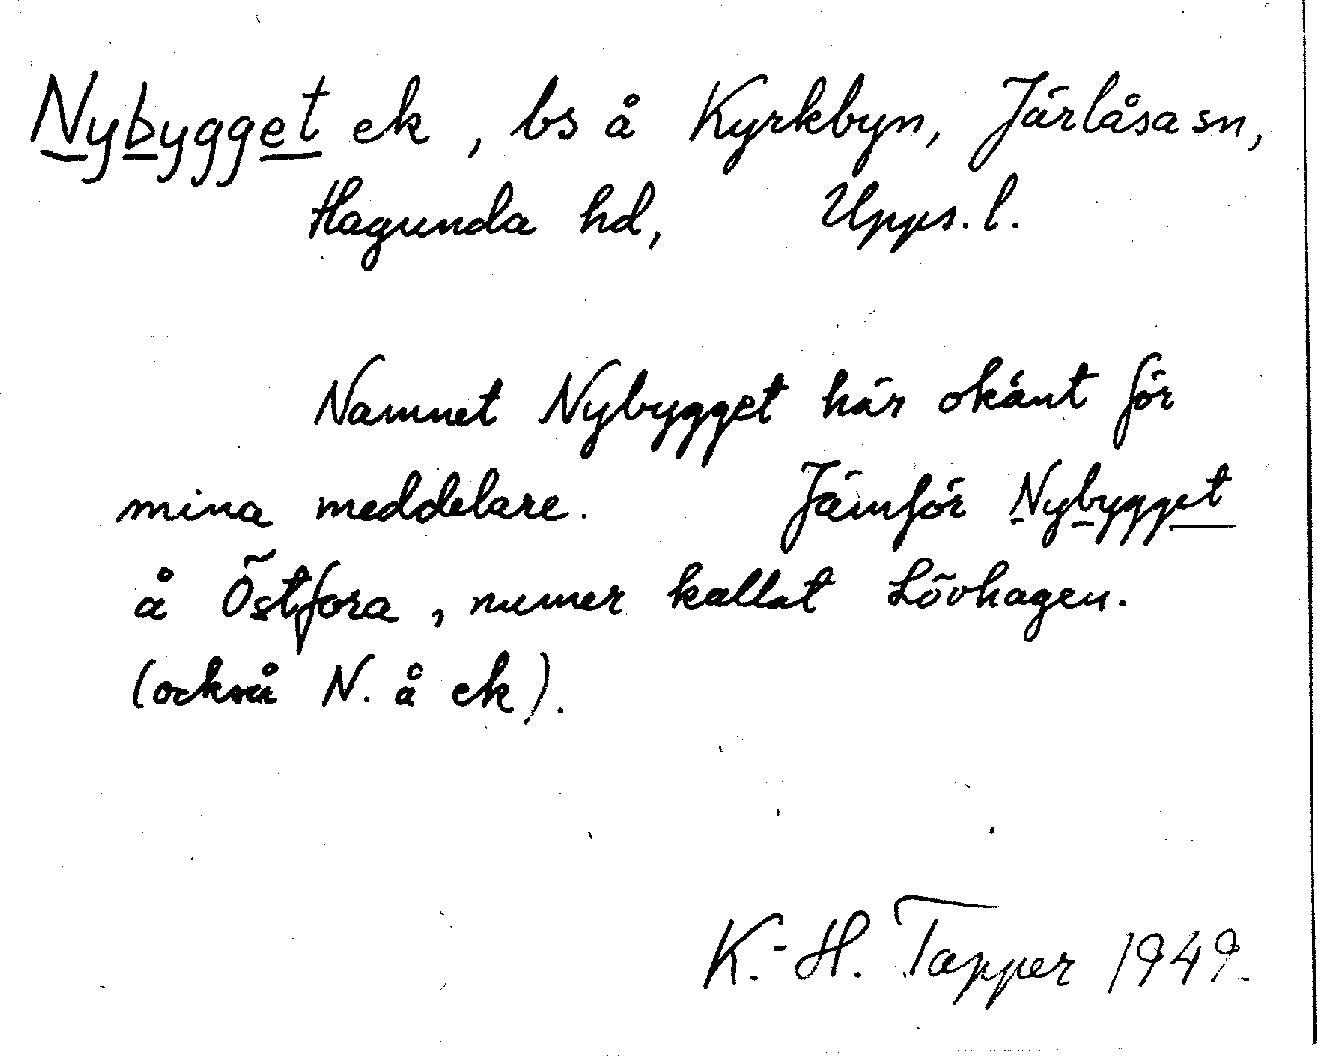 Nybygget ek, bs å Kyrkbyn, Järlåsa sn,
Hagunda hd, Upps. l.
Namnet Nybygget här okänt för
mina meddelare. Jämför Nybygget
å Östfora, numer kallat Lövhagen.
(också N. å ek).
K.-H. Tapper 1949.